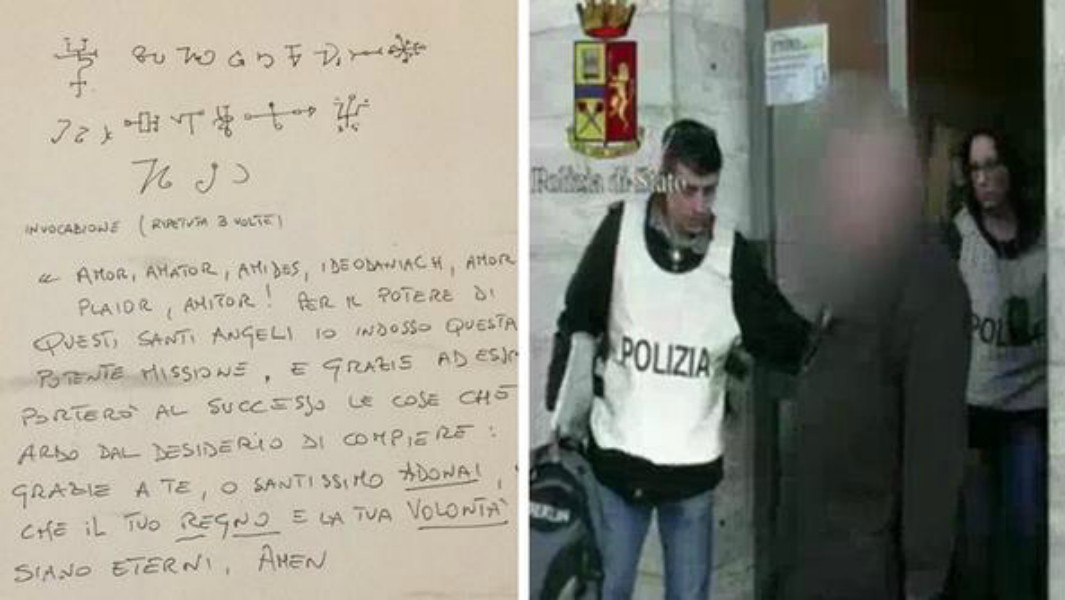 INVOCAZIONE (RIPETUTA 3 VOLTE)
" AMOR, AMATOR, AMIDES, IDEODANIACH, AMOR
PLAIOR, AMITOR! PER IL POTERE DI
QUESTI SANTI ANGELI IO INDOSSO QUESTA
POTENTE MISSIONE, E GRAZIE AD ESSA
PORTERÒ AL SUCCESSO LE COSE CHE
ARDO DAL DESIDERIO DI COMPIERE:
GRAZIE A TE, O SANTISSIMO ADONAI,
CHE IL TUO REGNO E LA TUA VOLONTÀ
SIANO ETERNI, AMEN
Polizia di Stato
POLIZIA
POLIZIA